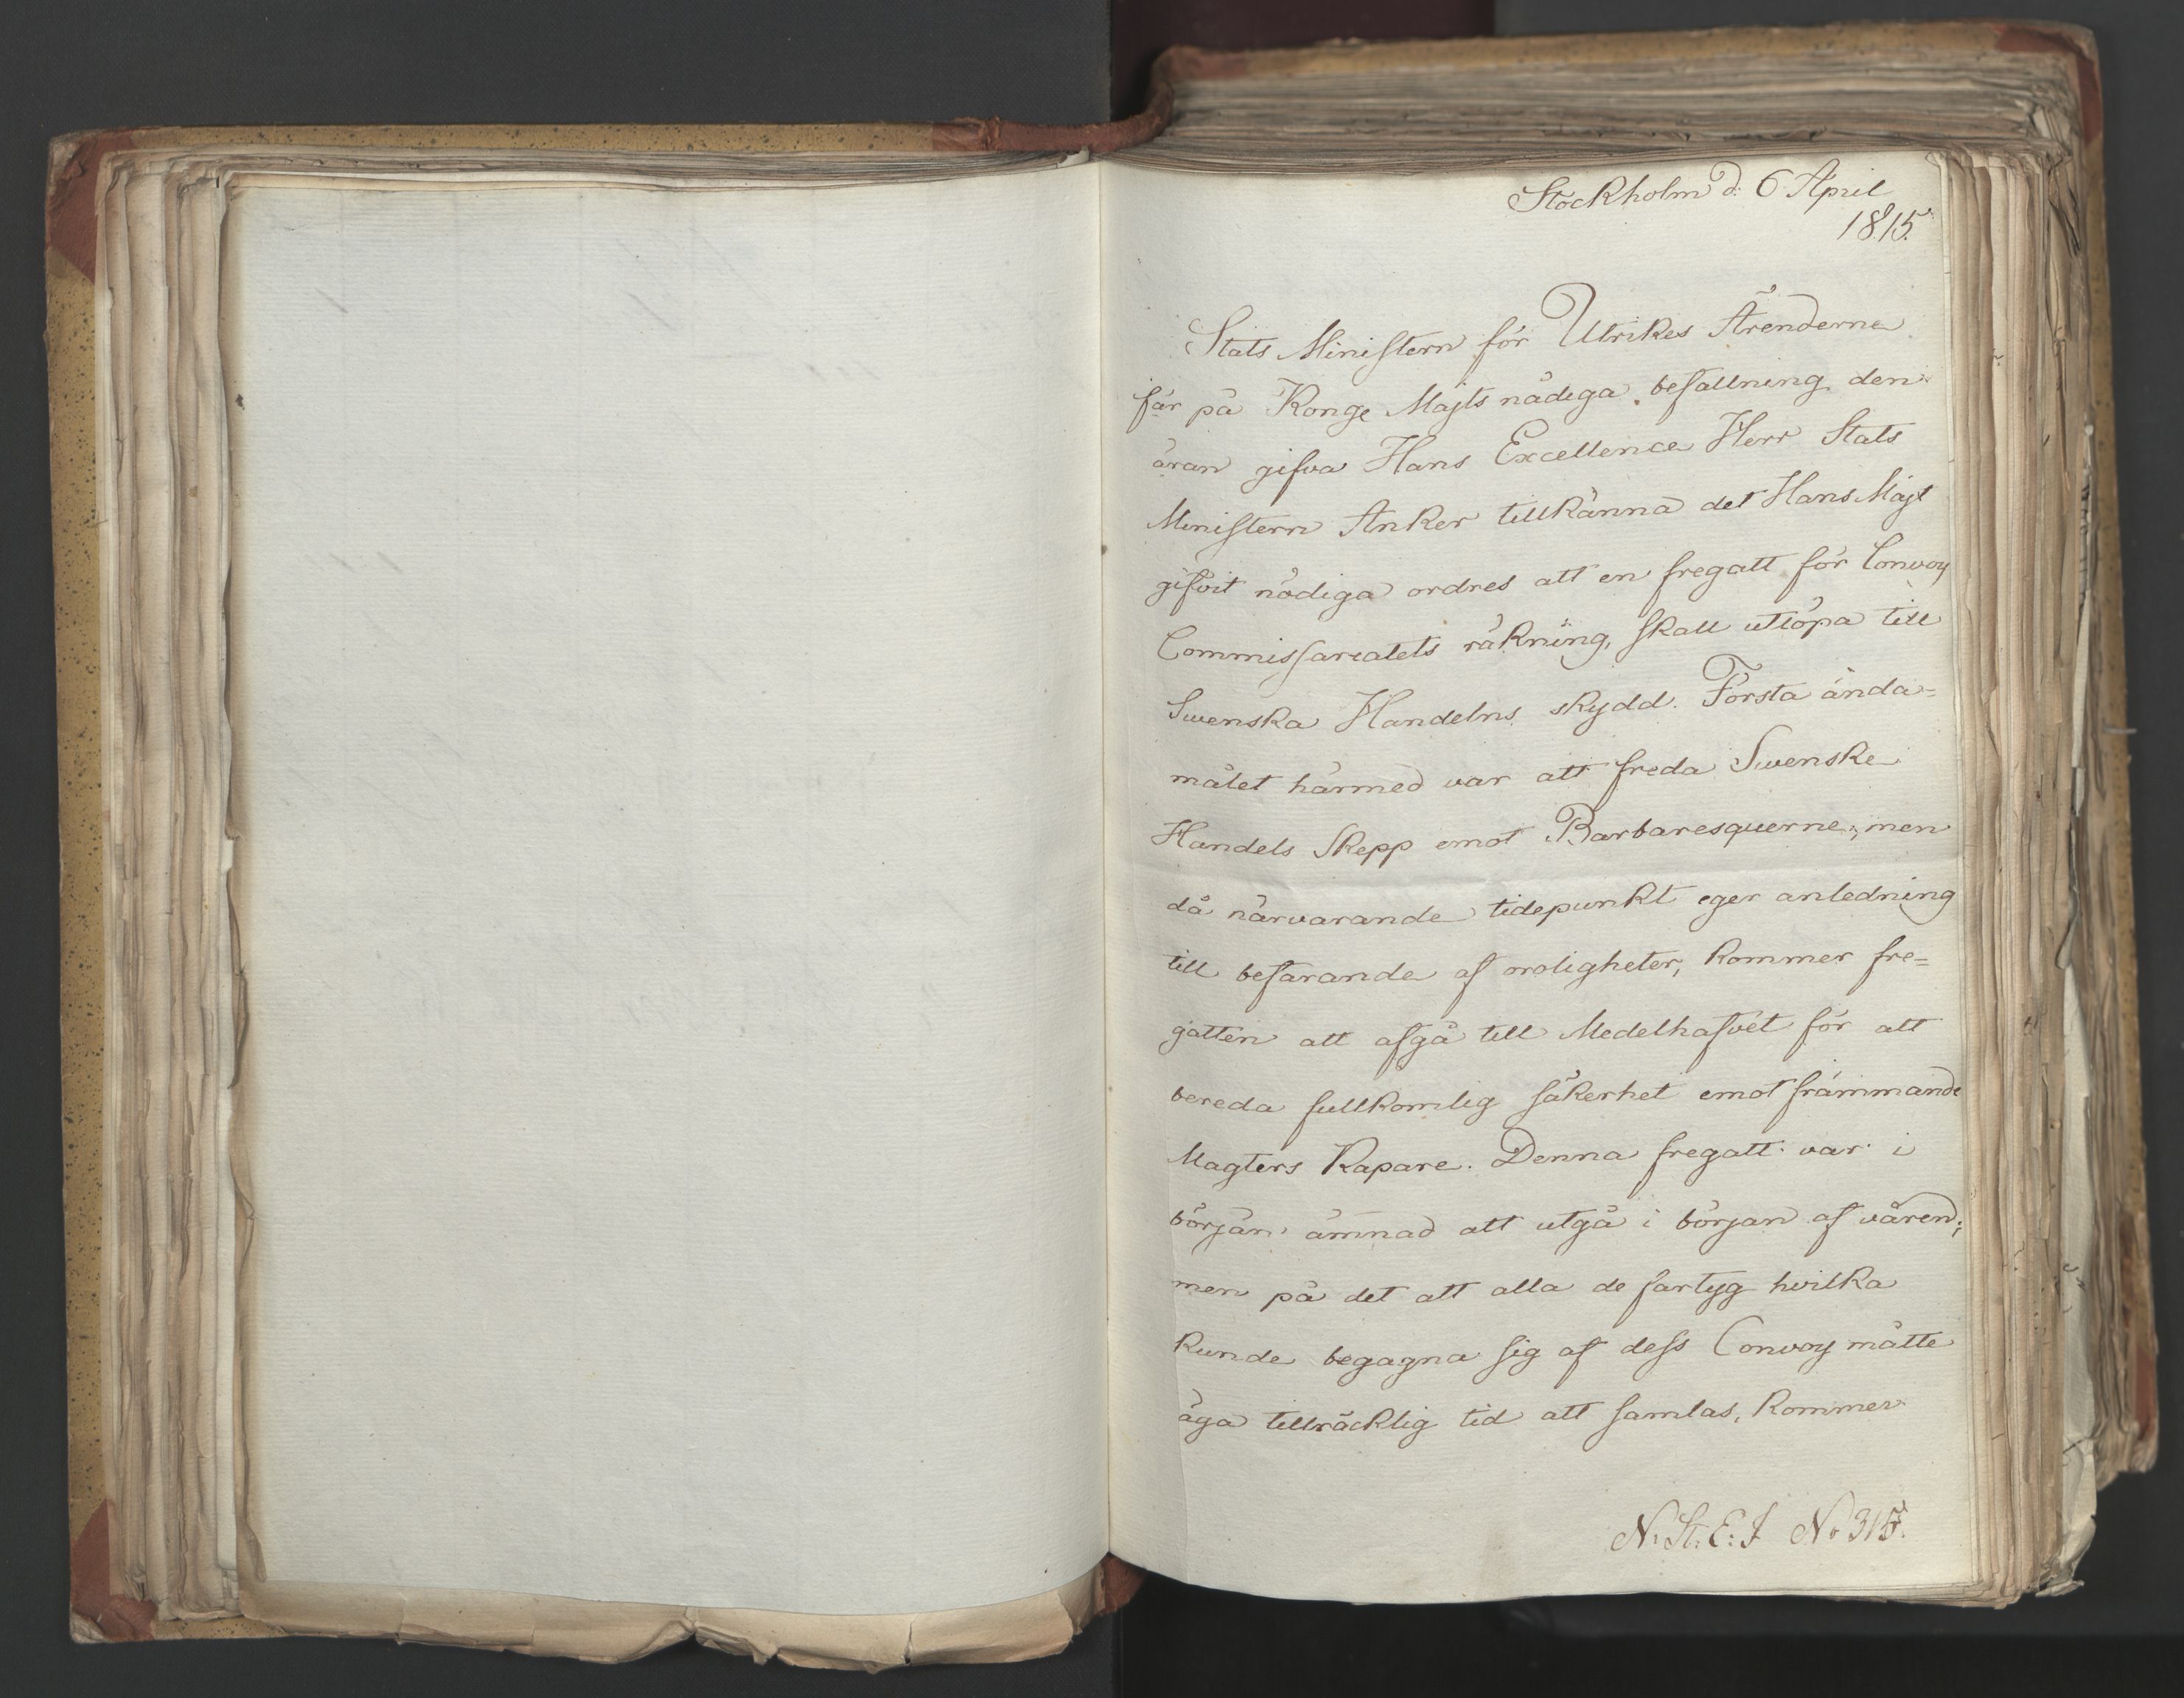 Stockholm d: 6 April
1815.
Stats Ministern för Utrikes Ärenderne
får på Konge Majts nådiga befallning den
äran gifva Hans Excellence Herr Stats
Ministern Anker tillkänna det Hans Majt
gifvit nödiga ordres att en fregatt för Convoy
Commissariatets räkning, skall utlöpa till
Swenska Handelns skydd. Första ända=
målet härmed var att freda Swenske
Handels Skepp emot Barbaresquerne; men
då närvarande tidepunkt eger anledning
till befarande af oroligheter, kommer fre=
gatten att afgå till Medelhafvet för att
bereda fullkomlig säkerhet emot främmande
Magters Kapare. Denna fregatt var i
början ämnad att utgå i början af våren;
men på det att alla de fartyg hvilka
kunde begagna sig af dess Convoy måtte
äga tillräcklig tid att samlas, kommer
N. St. E: J No 315.